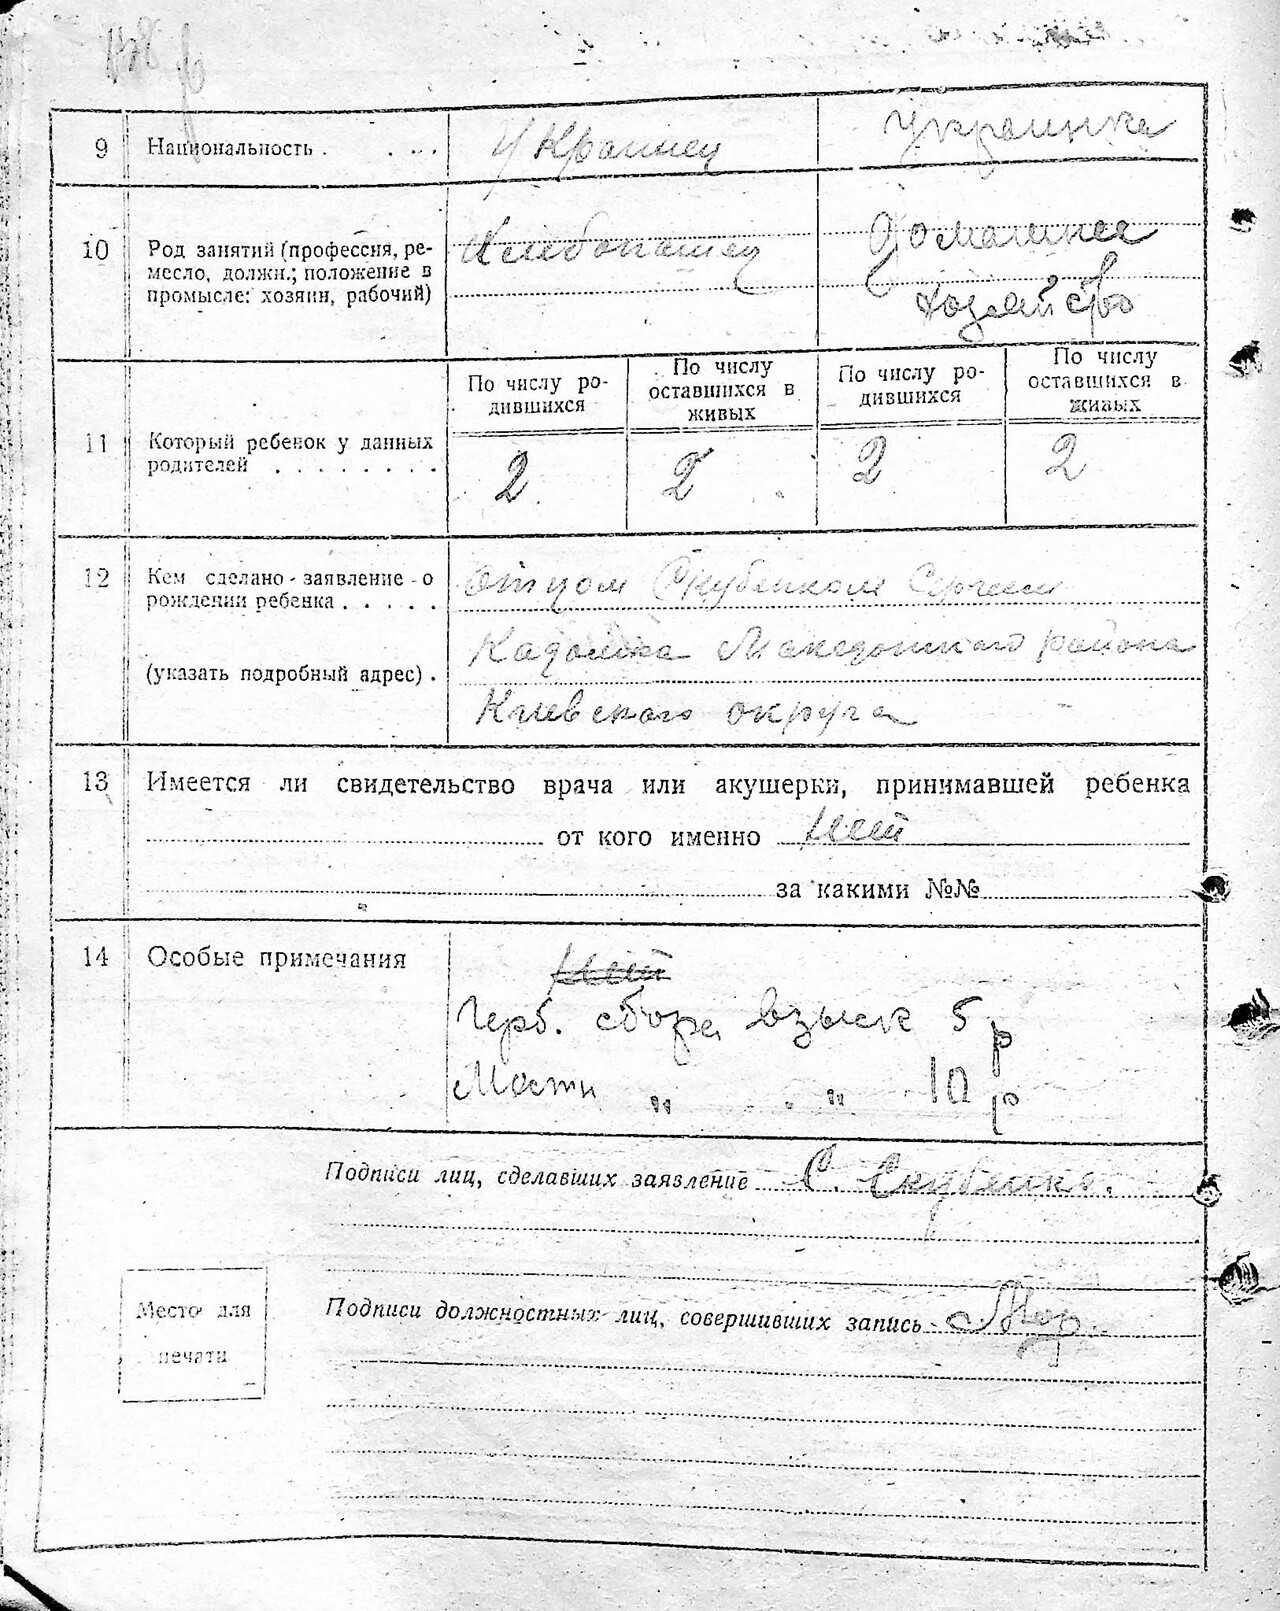 9 Национальность . . . . . Украинец Украинка
10 Род занятий (профессия, ре-
месло, должн.; положение в
промысле: хозяин, рабочий)
Хлебопашец
Домашнее
хозяйство
По числу ро-
дившихся
По числу
оставшихся в
живых
По числу ро-
дившихся
По числу
оставшихся в
живых
11 Который ребенок у данных
родителей . . . . . . . .
2 2 2 2
12 Кем сделано заявление о
рождении ребенка . . . . .
(указать подробный адрес) .
Отцом Скубенком Сергеем
Кадомка Македонского района
Киевского округа
13 Имеется ли свидетельство врача или акушерки, принимавшей ребенка
от кого именно нет
за какими №№
14 Особые примечания
нет
Герб. сбора взыск 5 р
Местн " " 10 р
Подписи лиц, сделавших заявление С. Скубенко.
Место для
печати
Подписи должностных лиц, совершивших запись